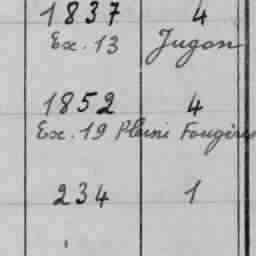 1837 4
Ex. 13 Jugon
1852 4
Ex. 19 Pleine Fougères
234 1